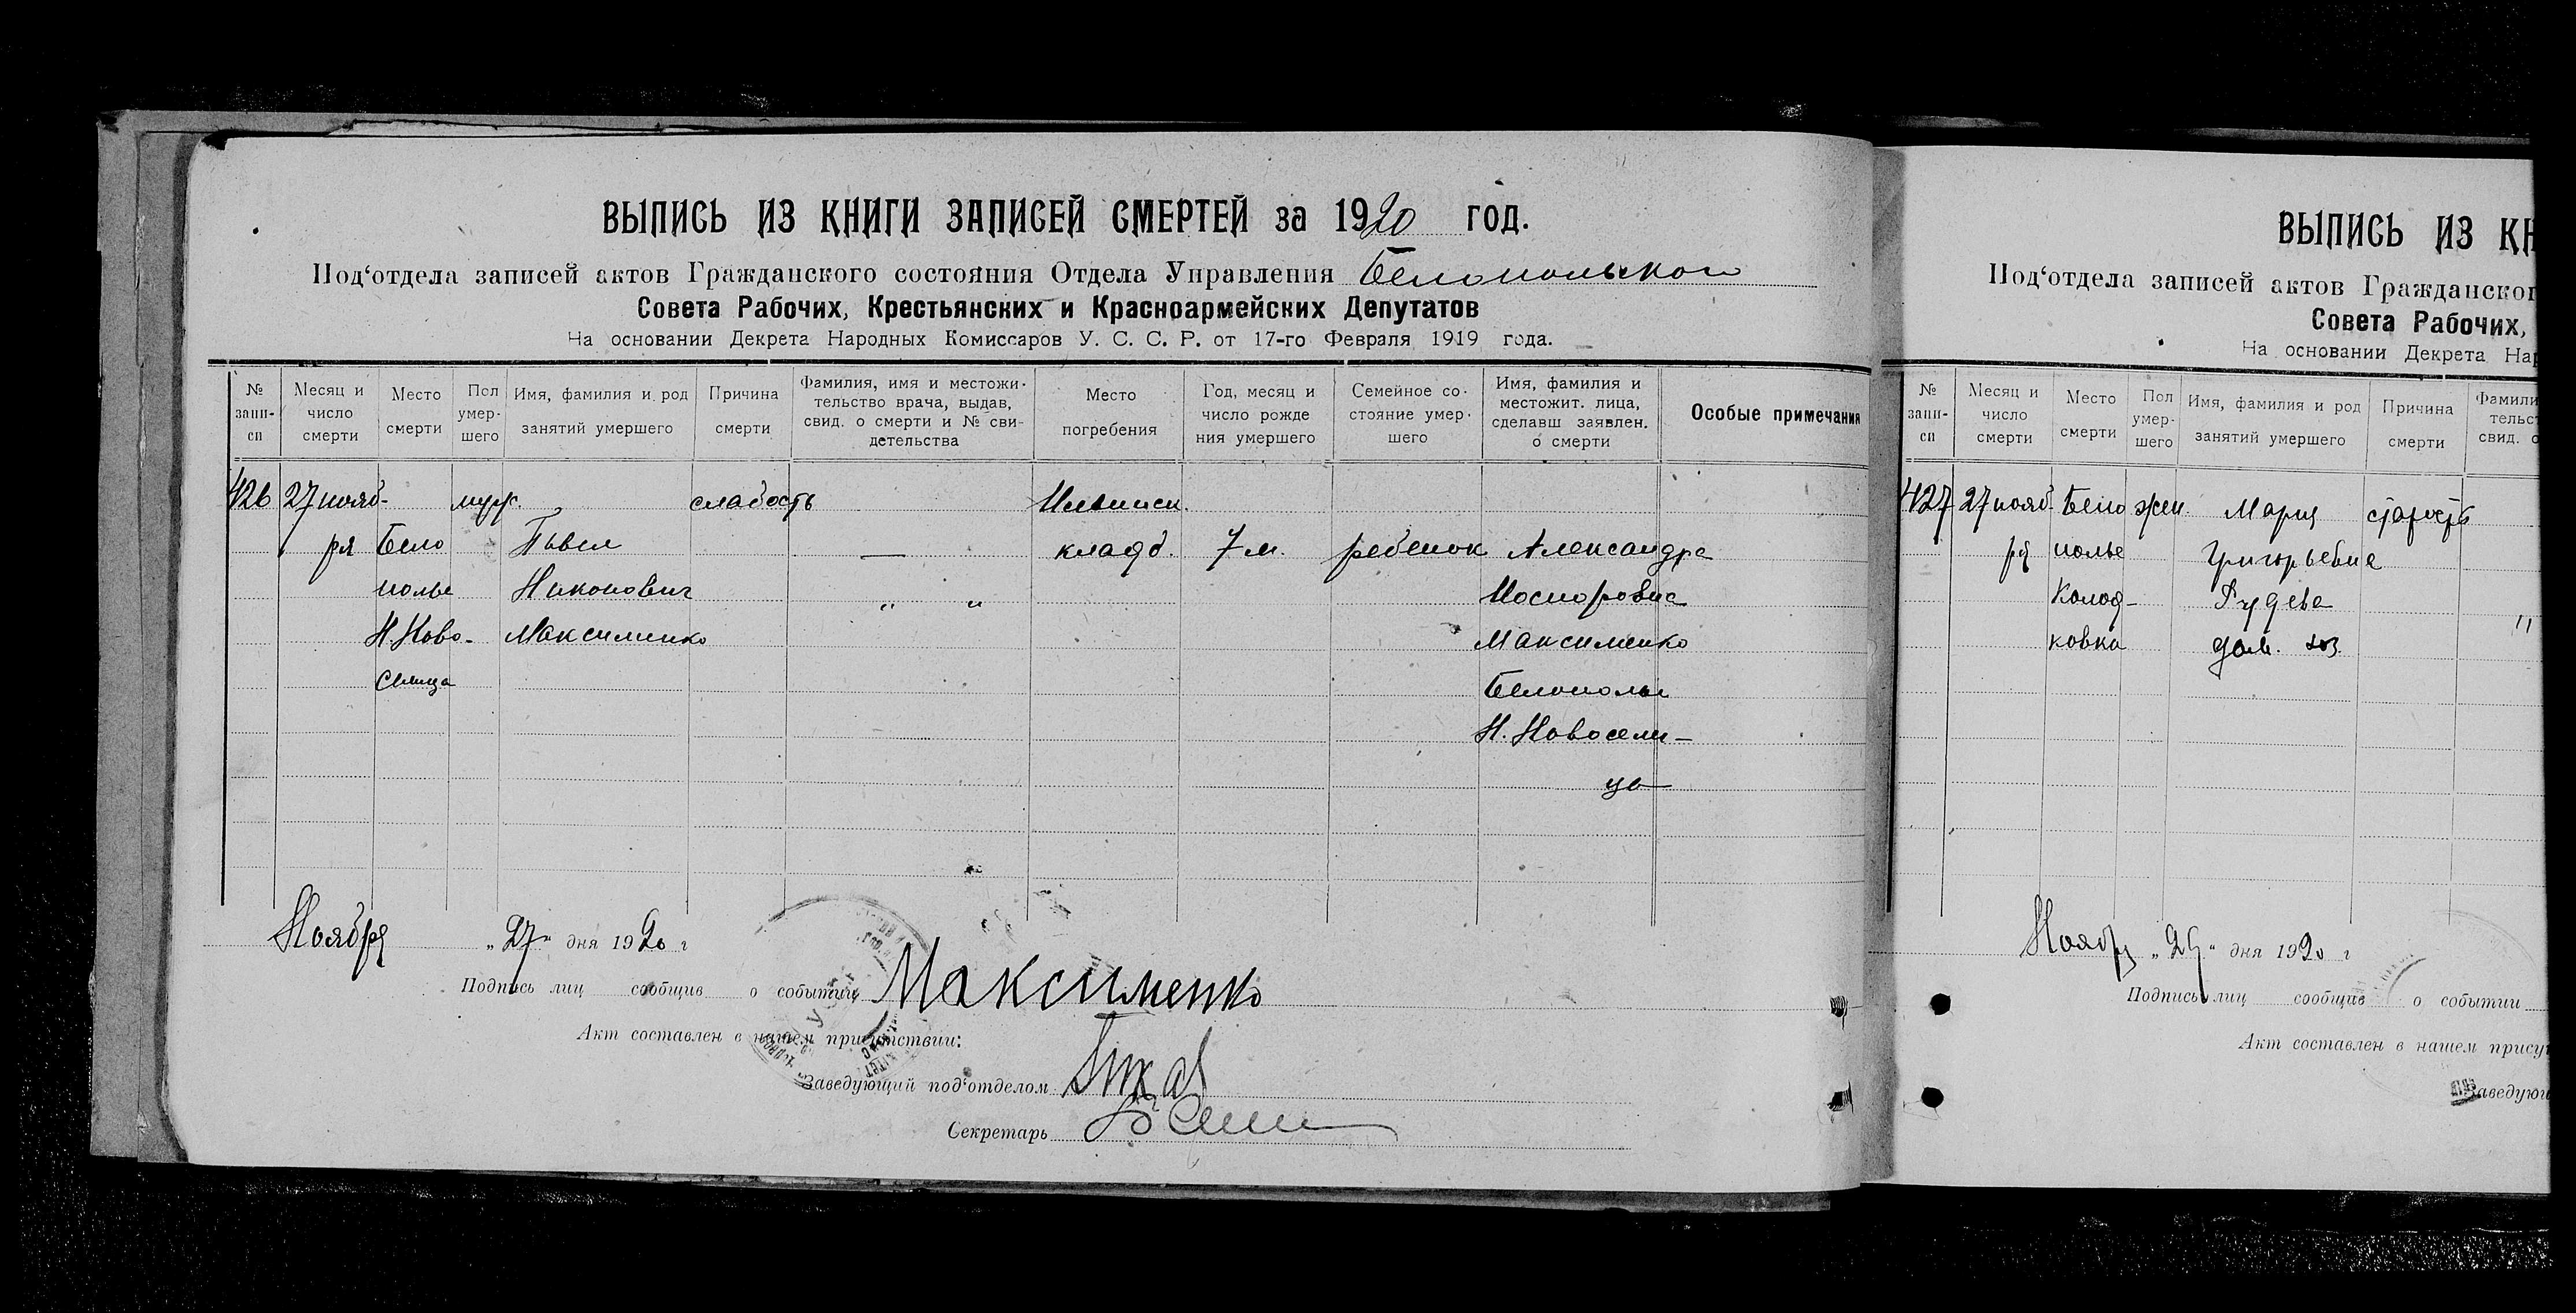 ВЫПИСЬ ИЗ КНИГИ ЗАПИСЕЙ СМЕРТЕЙ за 1920 год.
Под‘отдела записей актов Гражданского состояния Отдела Управления Белопольского
Совета Рабочих, Крестьянских и Красноармейских Депутатов
На основании Декрета Народных Комиссаров У. С. С. Р. от 17-го Февраля 1919 года.
№ запи-си
Месяц и число смерти
Место смерти
Пол умер-шего
Имя, фамилия и род занятий умершего
Причина смерти
Фамилия, имя и местожи-тельство врача, выдав, свид. о смерти и № сви-детельства
Место погребения
Год, месяц и число рожде ния умершего
Семейное со-стояние умер-шего
Имя, фамилия и местожит. лица, сделавш заявлен. о смерти
Особые примечания
426 27 нояб- муж. слабость
ря Бело Павел — кладб. 7 м. ребенок Александра
полье Никонович " "
Н. Ново- Максименко Максименко
селица Белополье
Н. Новосели-
ца
Ноября „27“ дня 1920 г
Подпись лиц сообщив о событии Максименко
Акт составлен в нашем присутствии:
Заведующий под‘отделом
Секретарь
ВЫПИСЬ ИЗ КН
Под‘отдела записей актов Гражданског
Совета Рабочих,
На основании Декрета Нар
№ запи-си
Месяц и число смерти
Место смерти
Пол умер-шего
Имя, фамилия и род занятий умершего
Причина смерти
Фамили
тельст
свид. о
427 27 нояб- Бело жен. Мария старость
ря полье
Колод-
ковка дом. хоз.
Ноября дня 1920 г
Подпись лиц сообщив о событии
Акт составлен в нашем прису
Заведую